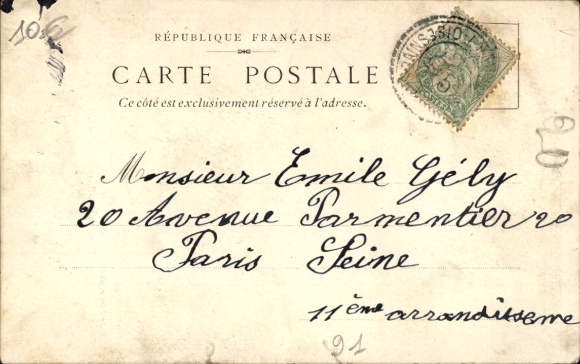 RÉPUBLIQUE FRANÇAISE
CARTE POSTALE
Ce côté est exclusivement réservé à l'adresse.
Monsieur Emile Gély
20 Avenue Parmentier 20
Paris Seine
11ème arrondisseme
91